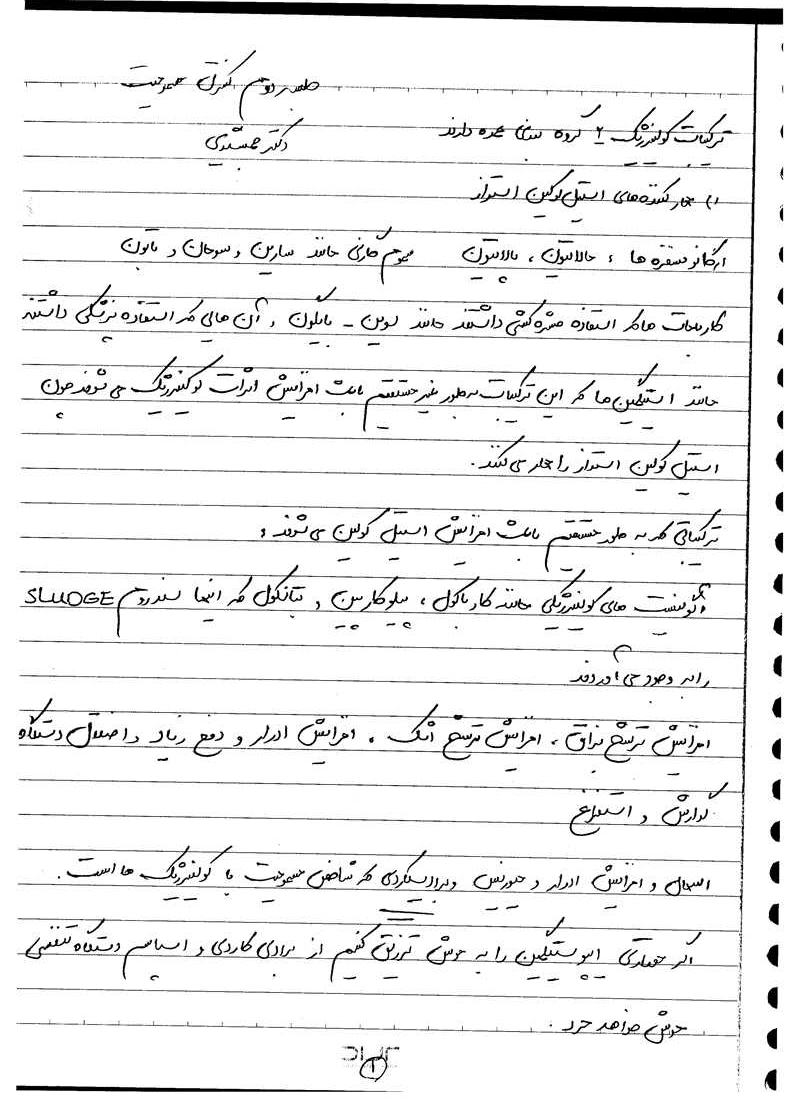 جلسه دوم کنترل مسمومیت
ترکیبات کولینرژیک ۲ گروه بندی عمده دارند
دکتر جمشیدی
۱) مهار کننده های استیل کولین استراز
ارگانوفسفره ها ، مالاتیون ، پاراتیون سموم گازی مانند سارین و سومان و تابون
کاربامات ها که استفاده حشره کشی داشتند مانند سوین - بایگون و آن هایی که استفاده پزشکی داشتند
مانند استیگمین ها که این ترکیبات به طور غیر مستقیم باعث افزایش اثرات کولینرژیک می شوند چون
استیل کولین استراز را مهار می کنند .
ترکیباتی که به طور مستقیم باعث افزایش استیل کولین می شوند ؛
آگونیست های کولینرژیکی مانند کارباکول ، پیلوکارپین و بتانکول که اینها سندروم SLUDGE
را به وجود می آورند
افزایش ترشح بزاق ، افزایش ترشح اشک ، افزایش ادرار و دفع زیاد و اختلال دستگاه
گوارش و استفراغ
اسهال و افزایش ادرار و میوزیس و برادیکاردی که شاخص مسمومیت با کولینرژیک ها است .
اگر مقداری فیزوستیگمین را به موش تزریق کنیم از برادی کاردی و اسپاسم دستگاه تنفسی
موش خواهد مرد .
۱